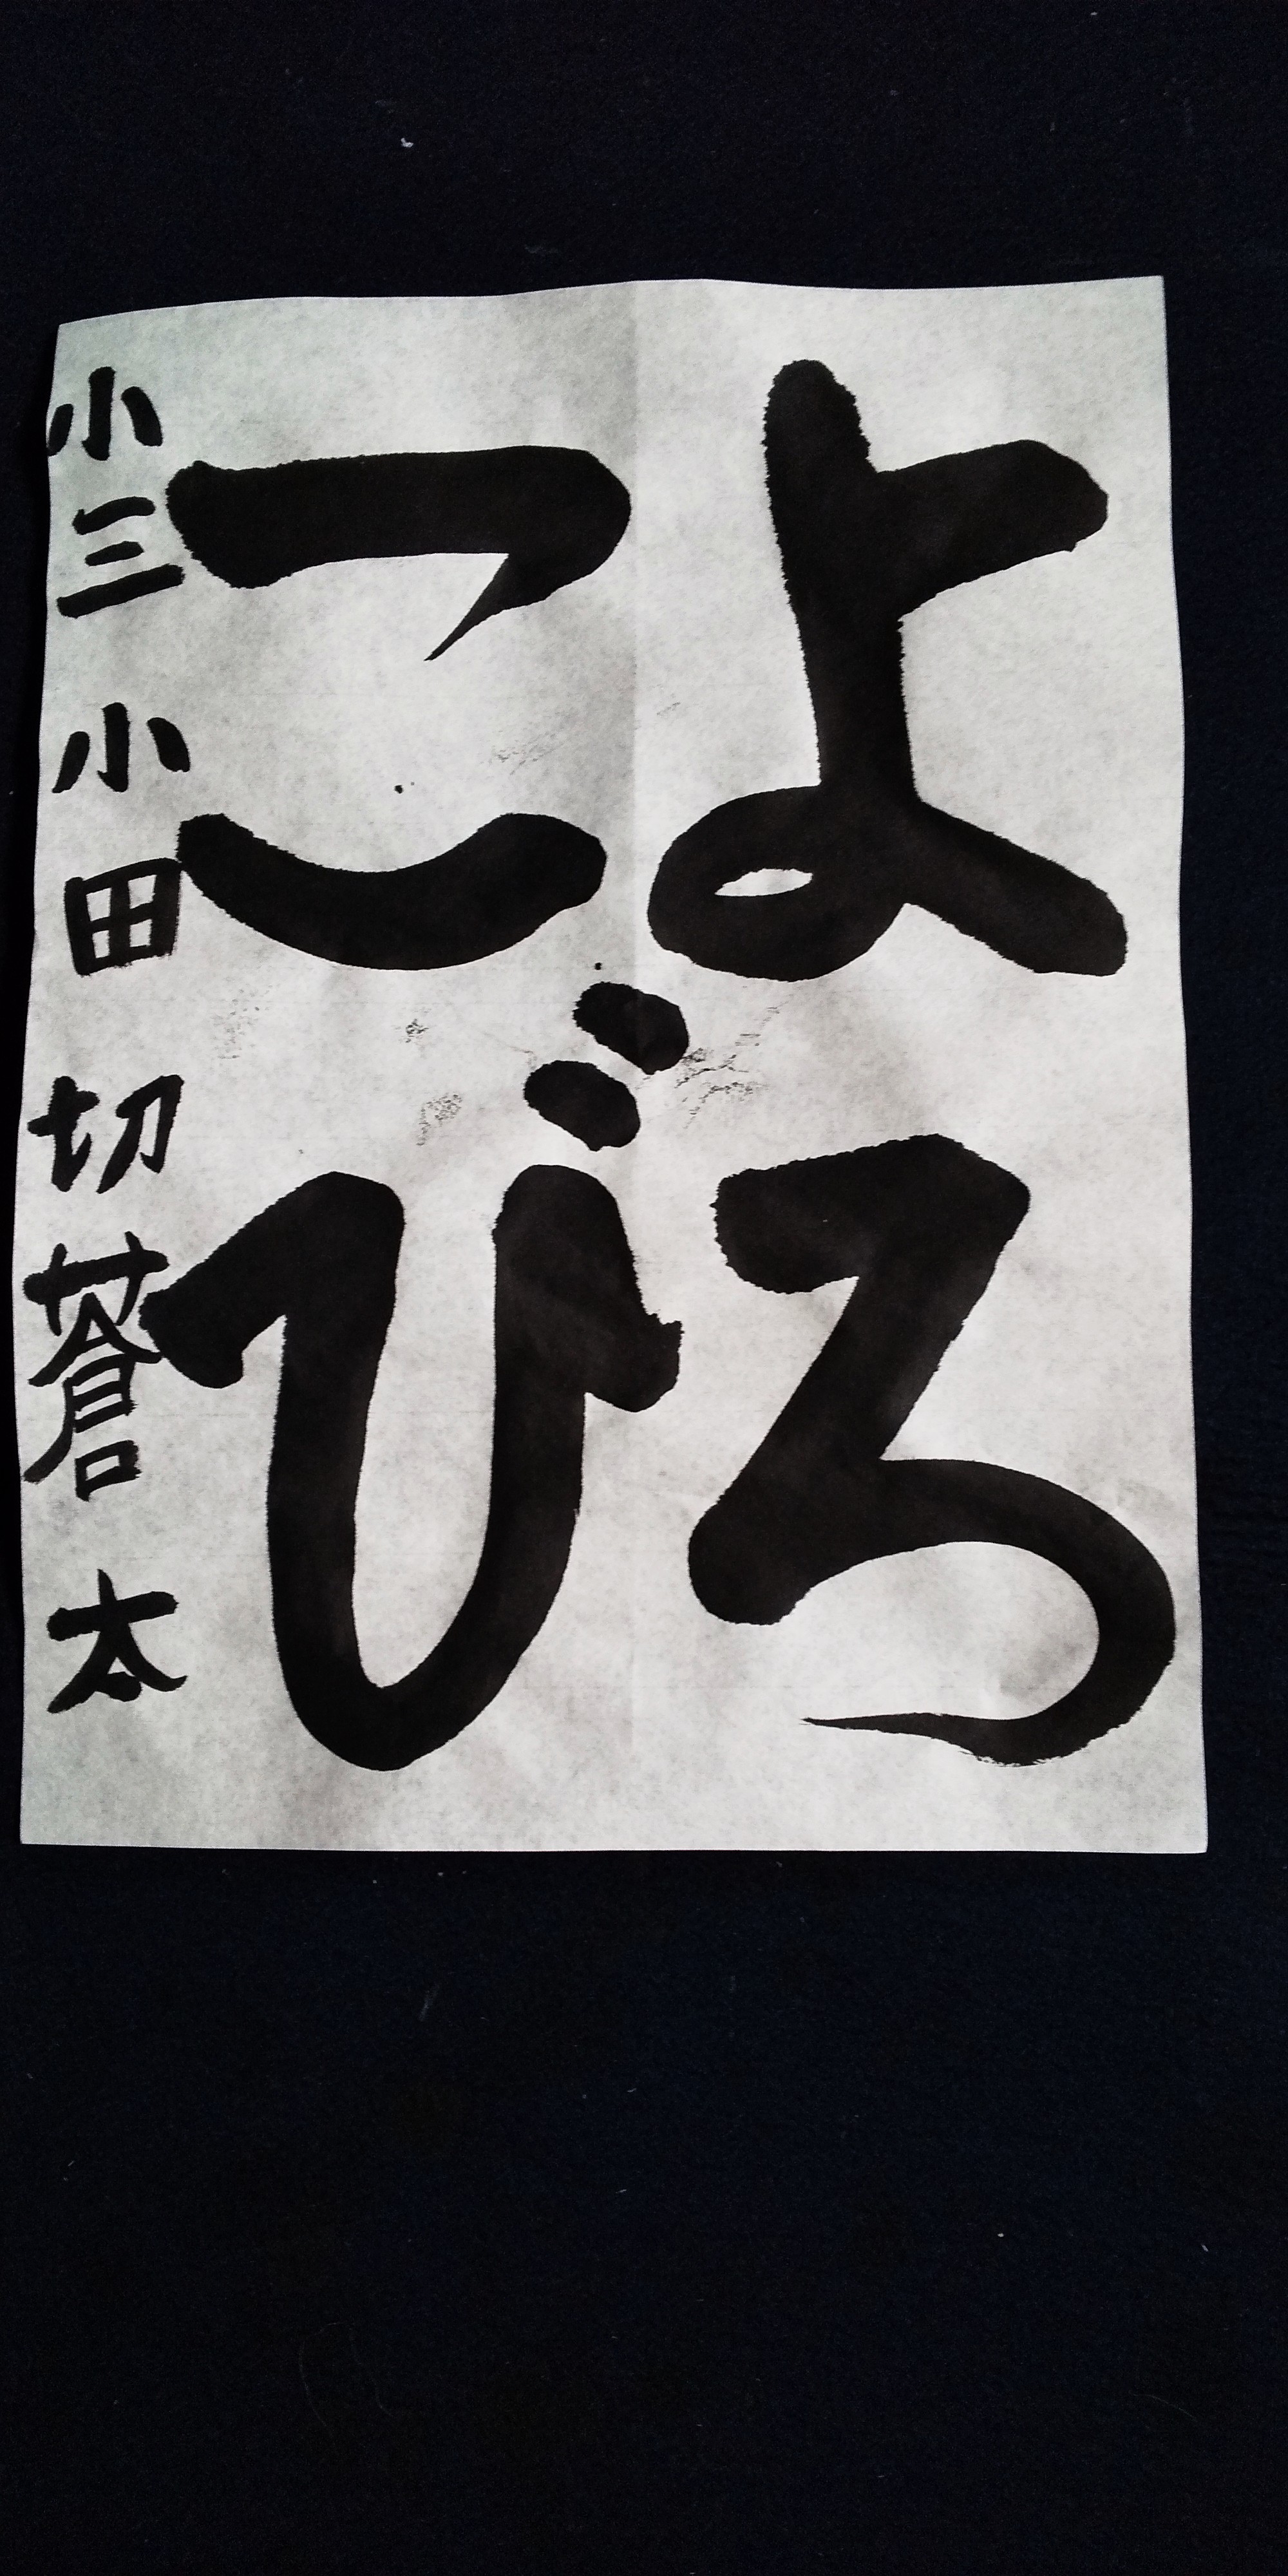 よろ
こび
小三 小田切蒼太